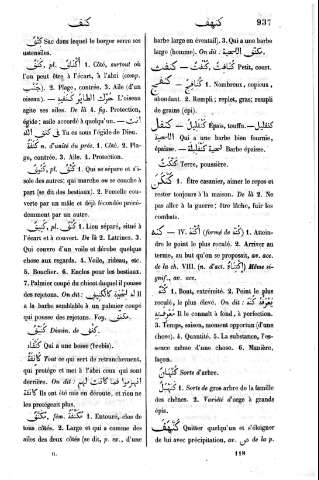 كنف
كنهف
937
كِنْف Sac dans lequel le berger serre ses
ustensiles.
كَنَف, pl. أَكْنَاف 1. Côté, surtout où
l'on peut être à l'écart, à l'abri (comp.
جنب). 2. Plage, contrée. 3. Aile (d'un
oiseau). — حرّك الطائر كنفيه L'oiseau
agite ses ailes. De là 4. fig. Protection,
égide; asile accordé à quelqu'un. — انت
فى كنف الله Tu es sous l'égide de Dieu.
كَنَفَة n. d'unité du préc. 1. Côté. 2. Pla-
ge, contrée. 3. Aile. 4. Protection.
كَنُوف, pl. كُنُف 1. Qui se sépare et s'i-
sole des autres, qui marche ou se couche à
part (se dit des bestiaux). 2. Femelle cou-
verte par un mâle et déjà fécondée précé-
demment par un autre.
كَنِيف, pl. كُنُف 1. Lieu séparé, situé à
l'écart et à couvert. De là 2. Latrines. 3.
Qui couvre d'un voile et dérobe quelque
chose aux regards. 4. Voile, rideau, etc.
5. Bouclier. 6. Enclos pour les bestiaux.
7. Palmier coupé du chaut duquel il pousse
des rejetons. On dit : له لحية كالكنيف Il
a la barbe semblable à un palmier coupé
qui pousse des rejetons. Voy. مكنّف.
كُنَيْف Dimin. de كنف.
كَنْفَاء Qui a une bosse (brebis).
كَانِفَة Tout ce qui sert de retranchement,
qui protége et met à l'abri ceux qui sont
derrière. On dit : انهزموا فما كانت لهم
كانفة Ils ont été mis en déroute, et rien ne
les protégeait plus.
مُكَنَّف, fém. مكنّفة 1. Entouré, clos de
tous côtés. 2. Large et qui a comme des
ailes des deux côtés (se dit, p. ex., d'une
barbe large en éventail). 3. Qui a une barbe
large (homme). On dit : مكنّف اللحية.
Petit, court.
1. Nombreux, copieux,
abondant. 2. Rempli; replet, gras; rempli
de grains (épi).
كنفل — كَنْفَلِيل Épais, touffu. — كنفليل
اللحية Qui a une barbe bien fournie,
épaisse. — لحية كنفليلة Barbe épaisse.
Terre, poussière.
1. Être casanier, aimer le repos et
rester toujours à la maison. De là 2. Ne
pas aller à la guerre; être lâche, fuir les
combats.
كنه — IV. أَكْنَهَ (formé de كنه) 1. Attein-
dre le point le plus reculé. 2. Arriver au
terme, au but qu'on se proposait, av. acc.
de la ch. VIII. (n. d'act. اكتناه) Même si-
gnif., av. acc.
كُنْه 1. Bout, extrémité. 2. Point le plus
reculé, le plus élevé. On dit : يعرفه كنه
معرفته Il le connaît à fond, à perfection.
3. Temps, saison, moment opportun (d'une
chose). 4. Quantité. 5. La substance, l'es-
sence même d'une chose. 6. Manière,
façon.
Sorte d'arbre.
1. Sorte de gros arbre de la famille
des chênes. 2. Variété d'orge à grands
épis.
كَنْهَفَ Quitter quelqu'un et s'éloigner
de lui avec précipitation, av. عن de la p.
II.
118